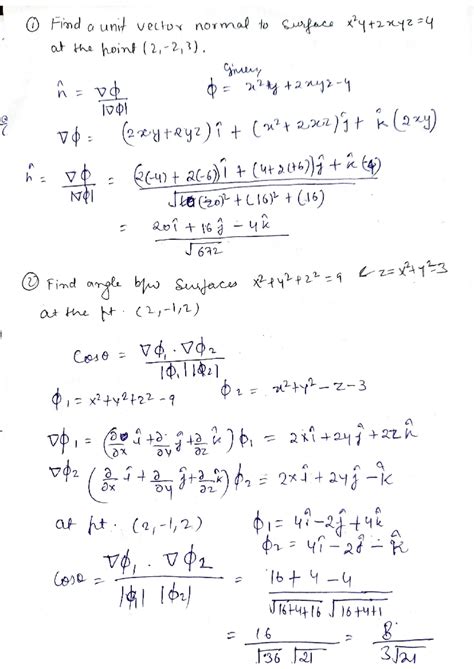 ① Find a unit vector normal to surface x²y+2xyz=4
at the point (2,-2,3).
n̂ = ∇ϕ / |∇ϕ|    Given ϕ = x²y + 2xyz - 4
∇ϕ = (2xy+2yz)î + (x²+2xz)ĵ + k̂(2xy)
n̂ = ∇ϕ / |∇ϕ| = (2(-4) + 2(-6))î + (4+2(+6))ĵ + k̂(4) / √(20)² + (16)² + (16)
= 20î + 16ĵ - 4k̂ / √672
② Find angle b/w Surfaces x²+y²+z²=9 & z=x²+y²-3
at the pt. (2,-1,2)
Cosθ = ∇ϕ₁ . ∇ϕ₂ / |ϕ₁| |ϕ₂|
ϕ₁ = x²+y²+z²-9    ϕ₂ = x²+y²-z-3
∇ϕ₁ = (∂/∂x î + ∂/∂y ĵ + ∂/∂z k̂) ϕ₁ = 2xî + 2yĵ + 2zk̂
∇ϕ₂ (∂/∂x î + ∂/∂y ĵ + ∂/∂z k̂) ϕ₂ = 2xî + 2yĵ - k̂
at pt. (2,-1,2)    ϕ₁ = 4î - 2ĵ + 4k̂
ϕ₂ = 4î - 2ĵ - k̂
Cosθ = ∇ϕ₁ . ∇ϕ₂ / |ϕ₁| |ϕ₂| = 16 + 4 - 4 / √16+4+16 √16+4+1
= 16 / √36 √21 = 8 / 3√21